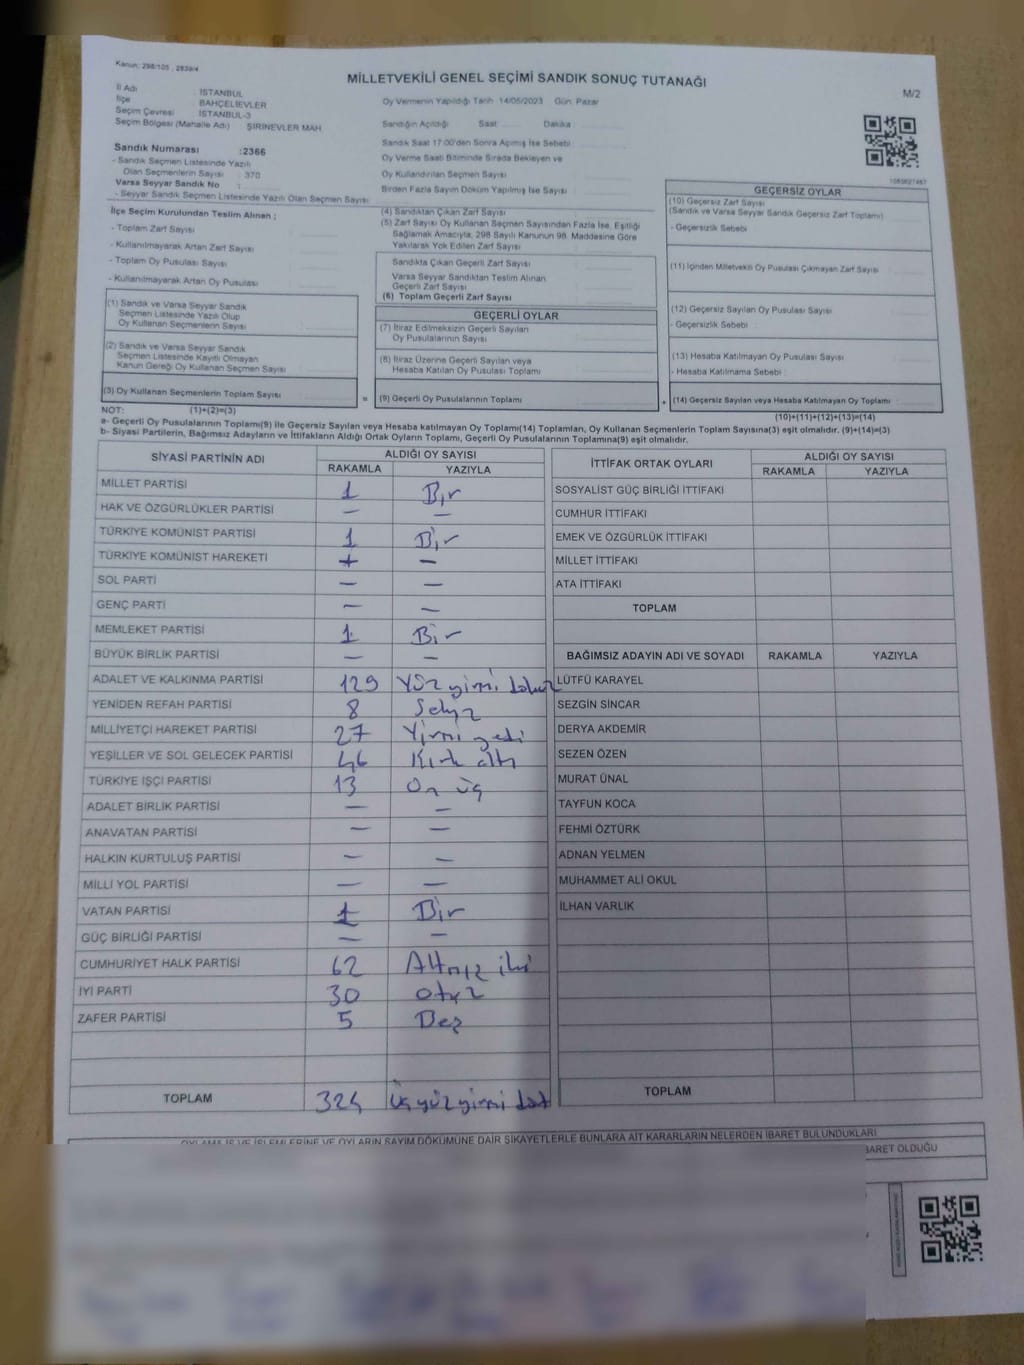 Kanun: 298/105 , 2839/4
MİLLETVEKİLİ GENEL SEÇİMİ SANDIK SONUÇ TUTANAĞI
M/2
İl Adı : İSTANBUL
İlçe : BAHÇELİEVLER
Seçim Çevresi : İSTANBUL-3
Seçim Bölgesi (Mahalle Adı) : ŞİRİNEVLER MAH
Oy Vermenin Yapıldığı Tarih 14/05/2023 Gün: Pazar
Sandığın Açıldığı Saat Dakika
Sandık Saat 17:00'den Sonra Açılmış İse Sebebi
Oy Verme Saati Bitiminde Sırada Bekleyen ve
Oy Kullandırılan Seçmen Sayısı
Birden Fazla Sayım Döküm Yapılmış İse Sayısı
Sandık Numarası :2366
- Sandık Seçmen Listesinde Yazılı
Olan Seçmenlerin Sayısı : 370
Varsa Seyyar Sandık No :
- Seyyar Sandık Seçmen Listesinde Yazılı Olan Seçmen Sayısı
İlçe Seçim Kurulundan Teslim Alınan ;
- Toplam Zarf Sayısı
- Kullanılmayarak Artan Zarf Sayısı
- Toplam Oy Pusulası Sayısı
- Kullanılmayarak Artan Oy Pusulası
(1) Sandık ve Varsa Seyyar Sandık
Seçmen Listesinde Yazılı Olup
Oy Kullanan Seçmenlerin Sayısı
(2) Sandık ve Varsa Seyyar Sandık
Seçmen Listesinde Kayıtlı Olmayan
Kanun Gereği Oy Kullanan Seçmen Sayısı
(3) Oy Kullanan Seçmenlerin Toplam Sayısı
(4) Sandıktan Çıkan Zarf Sayısı
(5) Zarf Sayısı Oy Kullanan Seçmen Sayısından Fazla İse, Eşitliği
Sağlamak Amacıyla, 298 Sayılı Kanunun 98. Maddesine Göre
Yakılarak Yok Edilen Zarf Sayısı
Sandıkta Çıkan Geçerli Zarf Sayısı
Varsa Seyyar Sandıktan Teslim Alınan
Geçerli Zarf Sayısı
(6) Toplam Geçerli Zarf Sayısı
GEÇERLİ OYLAR
(7) İtiraz Edilmeksizin Geçerli Sayılan
Oy Pusulalarının Sayısı
(8) İtiraz Üzerine Geçerli Sayılan veya
Hesaba Katılan Oy Pusulası Toplamı
= (9) Geçerli Oy Pusulalarının Toplamı
GEÇERSİZ OYLAR
(10) Geçersiz Zarf Sayısı
(Sandık ve Varsa Seyyar Sandık Geçersiz Zarf Toplamı)
- Geçersizlik Sebebi
(11) İçinden Milletvekili Oy Pusulası Çıkmayan Zarf Sayısı
(12) Geçersiz Sayılan Oy Pusulası Sayısı
- Geçersizlik Sebebi :
(13) Hesaba Katılmayan Oy Pusulası Sayısı
- Hesaba Katılmama Sebebi :
+ (14) Geçersiz Sayılan veya Hesaba Katılmayan Oy Toplamı
NOT: (1)+(2)=(3)
(10)+(11)+(12)+(13)=(14)
a- Geçerli Oy Pusulalarının Toplamı(9) ile Geçersiz Sayılan veya Hesaba Katılmayan Oy Toplamı(14) Toplamları, Oy Kullanan Seçmenlerin Toplam Sayısına(3) eşit olmalıdır. (9)+(14)=(3)
b- Siyasi Partilerin, Bağımsız Adayların ve İttifakların Aldığı Ortak Oyların Toplamı, Geçerli Oy Pusulalarının Toplamına(9) eşit olmalıdır.
SİYASİ PARTİNİN ADI ALDIĞI OY SAYISI
RAKAMLA YAZIYLA
MİLLET PARTİSİ 1 Bir
HAK VE ÖZGÜRLÜKLER PARTİSİ — —
TÜRKİYE KOMÜNİST PARTİSİ 1 Bir
TÜRKİYE KOMÜNİST HAREKETİ —
SOL PARTİ — —
GENÇ PARTİ — —
MEMLEKET PARTİSİ 1 Bir
BÜYÜK BİRLİK PARTİSİ — —
ADALET VE KALKINMA PARTİSİ 129 Yüz yirmi dokuz
YENİDEN REFAH PARTİSİ 8 Sekiz
MİLLİYETÇİ HAREKET PARTİSİ 27 Yirmi yedi
YEŞİLLER VE SOL GELECEK PARTİSİ 46 Kırk altı
TÜRKİYE İŞÇİ PARTİSİ 13 On üç
ADALET BİRLİK PARTİSİ — —
ANAVATAN PARTİSİ — —
HALKIN KURTULUŞ PARTİSİ — —
MİLLİ YOL PARTİSİ — —
VATAN PARTİSİ 1 Bir
GÜÇ BİRLİĞİ PARTİSİ — —
CUMHURİYET HALK PARTİSİ 62 Altmış iki
İYİ PARTİ 30 Otuz
ZAFER PARTİSİ 5 Beş
TOPLAM 324 Üç yüz yirmi dört
İTTİFAK ORTAK OYLARI ALDIĞI OY SAYISI
RAKAMLA YAZIYLA
SOSYALİST GÜÇ BİRLİĞİ İTTİFAKI
CUMHUR İTTİFAKI
EMEK VE ÖZGÜRLÜK İTTİFAKI
MİLLET İTTİFAKI
ATA İTTİFAKI
TOPLAM
BAĞIMSIZ ADAYIN ADI VE SOYADI RAKAMLA YAZIYLA
LÜTFÜ KARAYEL
SEZGİN SİNCAR
DERYA AKDEMİR
SEZEN ÖZEN
MURAT ÜNAL
TAYFUN KOCA
FEHMİ ÖZTÜRK
ADNAN YELMEN
MUHAMMET ALİ OKUL
İLHAN VARLIK
TOPLAM
OYLAMA İŞ VE İŞLEMLERİNE VE OYLARIN SAYIM DÖKÜMÜNE DAİR ŞİKAYETLERLE BUNLARA AİT KARARLARIN NELERDEN İBARET BULUNDUKLARI
BARET OLDUĞU